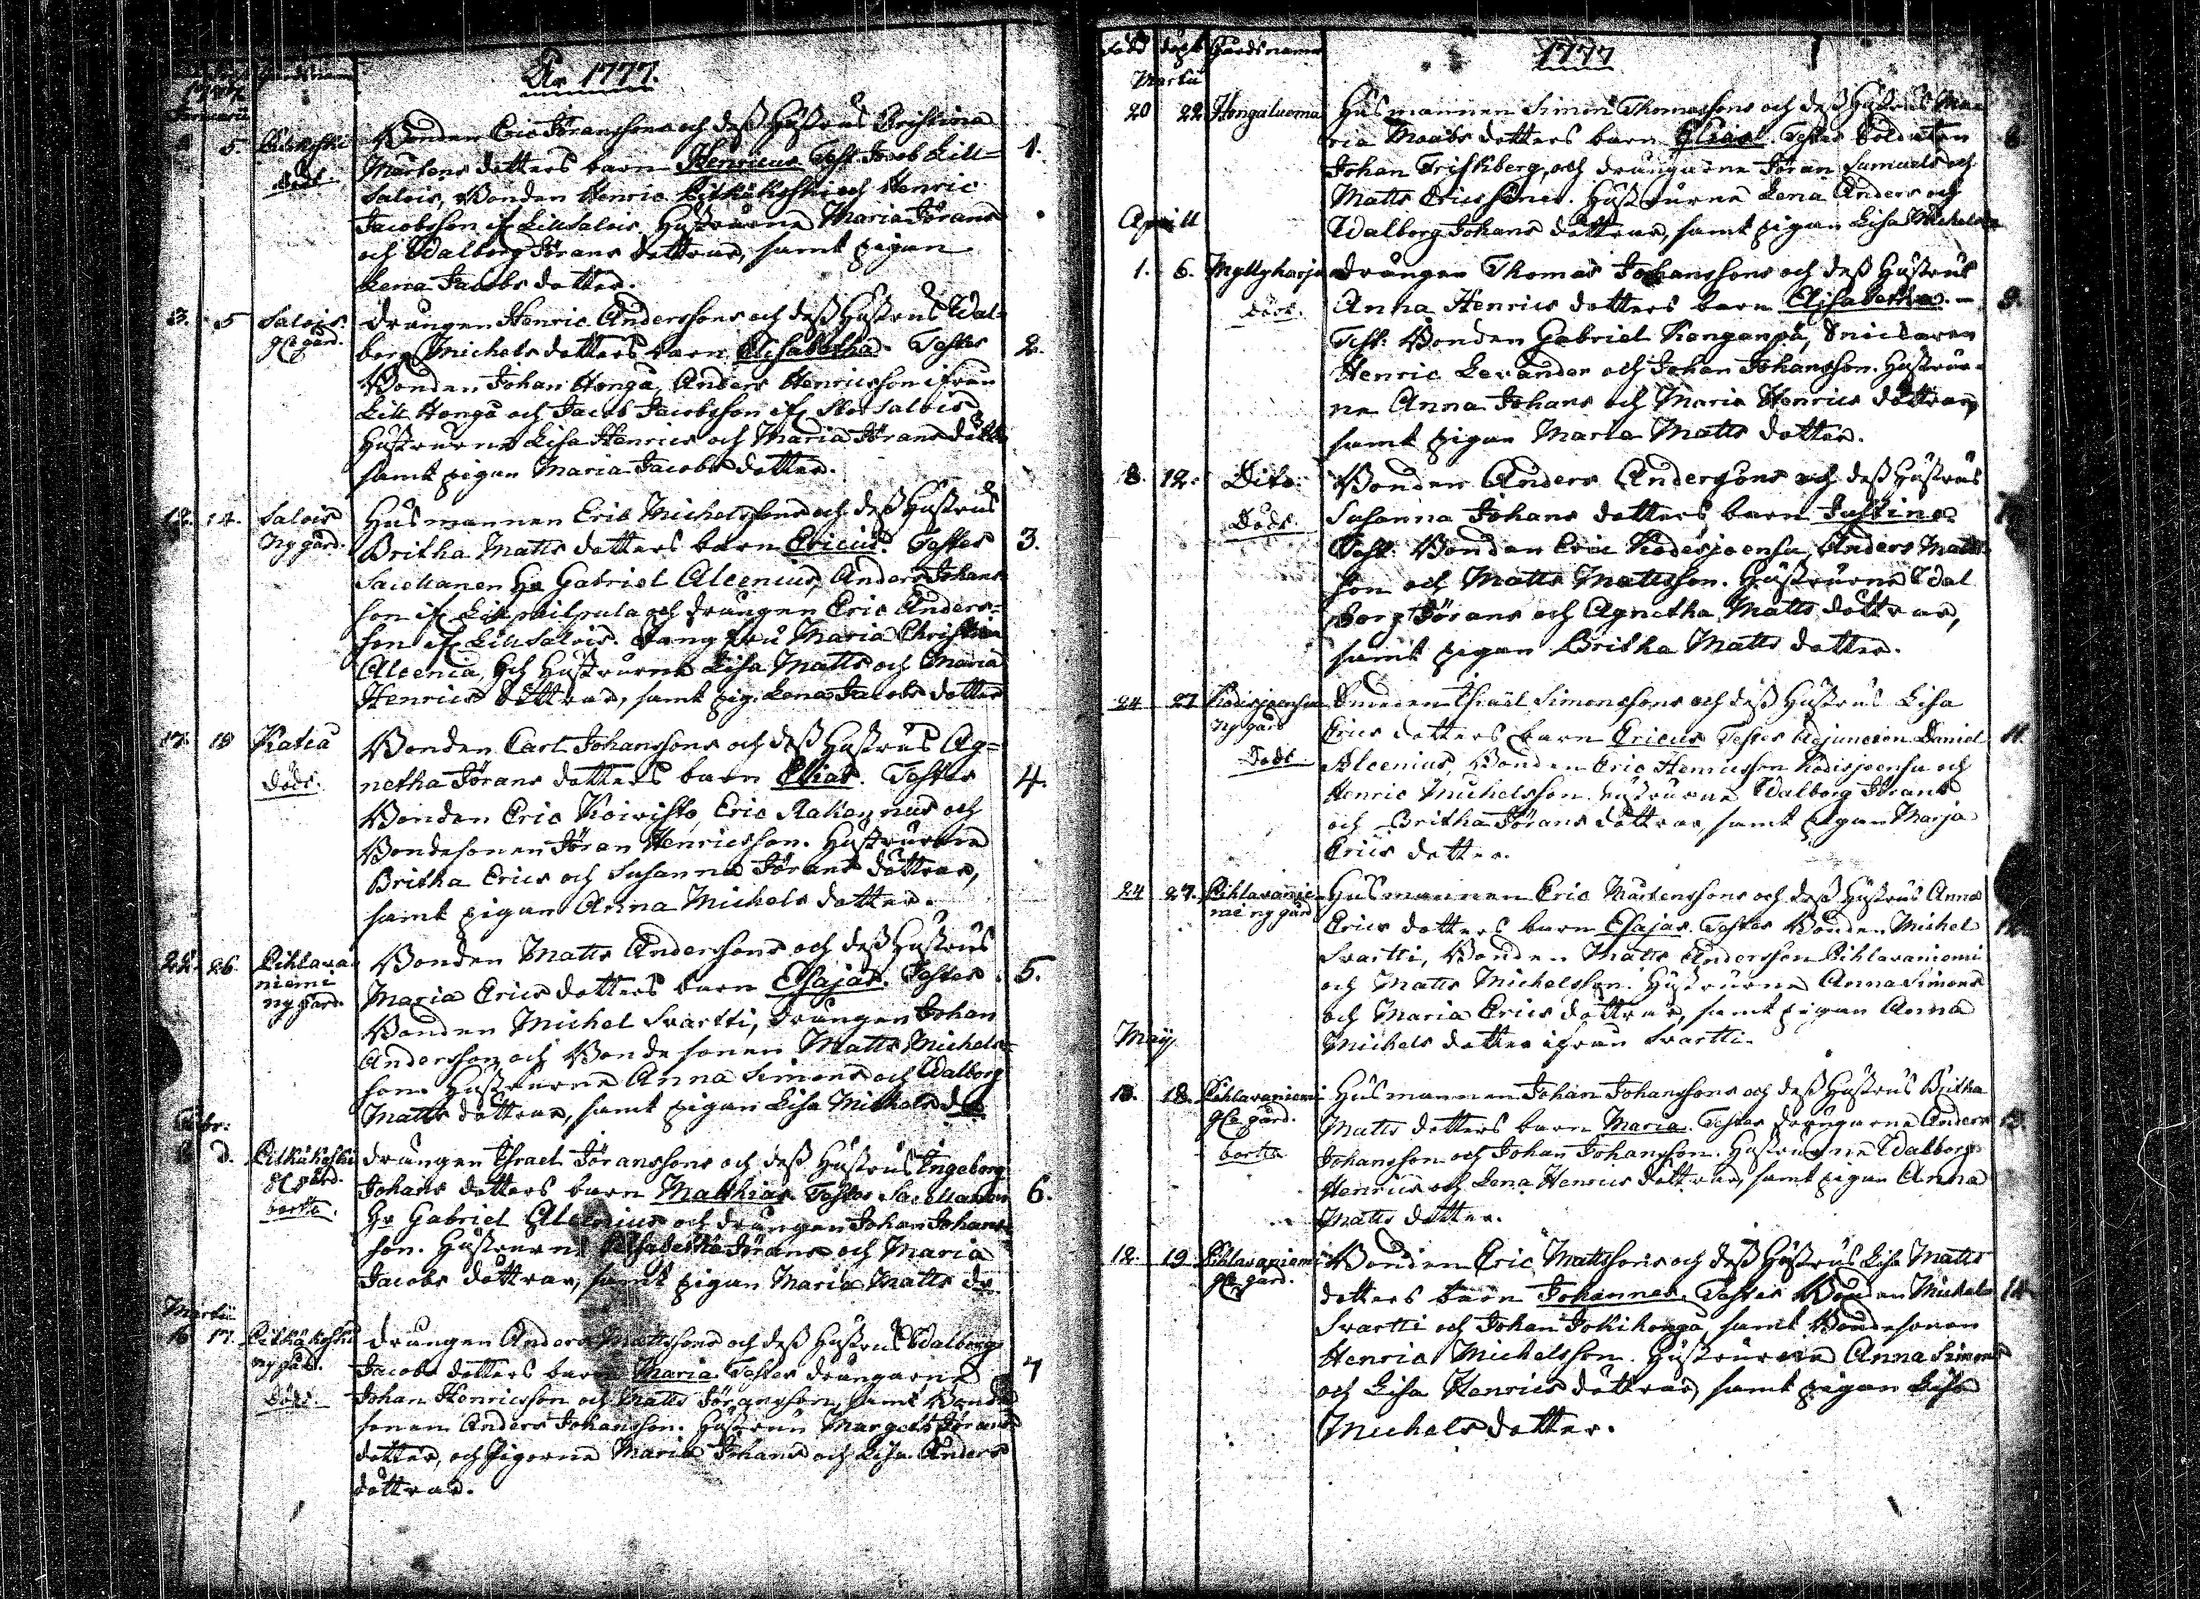 År 1777.
1777
Januarii
5. Pitkäkoski Bonden Eric Jöranssons och dess Hustrus Christina
Mårtens dotters barn Henricus Test. Jacob Lill=
död. Salois, Bonden Henric Pitkäkoski och Henric
Jacobsson if. Lill Salois, Hustrurne Maria Jörans
och Walborg Jörans döttrar, samt pigan
Lena Jacobs dotter.
1.
3. 5 Salois Drängen Henric Anderssons och dess Hustrus Wal-
gl. gård. borg Michels dotters barn Elisabetha. Testes 2.
Bonden Johan Honga, Anders Henricsson ifrån
Lill Honga och Jacob Jacobsson if. Stor Salois
Hustrurne Lisa Henrics och Maria Jörans dött
samt pigan Maria Jacobs dotter.
12. 14. Salois Husmannen Eric Michelssons och dess Hustrus
Ny gård. Britha Matts dotters barn Ericus. Testes 3.
Sacellanen Hr Gabriel Alcenius, Anders Johans
son if. Lill och drängen Eric Anders=
son if. Lill Salois. Jungfru Maria Christina
Alcenia, och Hustrurne Lisa Matts och Maria
Henrics döttrar, samt pig. Lena Jacobs dotter
17. 19 Katia Bonden Carl Johanssons och dess Hustrus Ag=
död. netha Jörans dotters barn Elias. Testes 4.
Bonden Eric Koivisto, Eric Rakennus och
Bondesonen Jöran Henricsson. Hustrurne
Britha Erics och Susanna Jörans döttrar,
samt pigan Anna Michels dotter.
22. 26 Pihlava Bonden Matts Anderssons och dess Hustrus
niemi Maria Erics dotters barn Esajas. Testes 5.
ny gård. Bonden Michel Svartti, drängen Johan
Andersson och Bondesonen Matts Michels=
son. Hustrurne Anna Simons och Walborg
Matts döttrar, samt pigan Lisa Michels dr
Febr:
2 d. Pitkäkoski drängen Israel Jöranssons och dess Hustrus Ingeborg
gl gård. Johans dotters barn Matthias. Testes Sacellanen 6.
borta. Hr Gabriel Alcenius och drängen Johan Johans
son. Hustrurne Elisabetha Jörans och Maria
Jacobs döttrar, samt pigan Maria Matts dr
Martii
16 17. Pitkäkoski drängen Anders Mattssons och dess Hustrus Walborg
ny gård. Jacobs dotters barn Maria Testes drängarne 7
Död. Johan Henricsson och Matts Jöransson, samt Bonde
sonen Anders Johansson. Hustrun Margeta Jörans
dotter, och Pigorne Maria Johans och Lisa Anders
döttrar.
född döpt Gårdsnamn 1777
Martii
20 22 Hongaluoma Husmannen Simon Thomassons och dess Hustrus Ma
ria dotters barn Elias. Testes Soldaten 8
Johan Friskberg, och drängarne Jöran Samuels och
Matts Ericssöner. Hustrurne Lena Anders och
Walborg Johans döttrar, samt pigan Lisa Michels
Aprill
1. 6. Myllyharju drängen Thomas Johanssons och dess Hustrus
död. Anna Henrics dotters barn Elisabetha. 9.
Test: Bonden Gabriel Kanganpä, Snickaren
Henric Levander och Johan Johansson. Hustrur-
ne Anna Johans och Maria Henrics döttrar,
samt pigan Maria Matts dotter.
8. 12. Dito. Bonden Anders Anderssons och dess Hustrus
Död. Susanna Johans dotters barn Justina
Test: Bonden Eric Kodesjoensu, Anders Matts
son och Matts Mattsson. Hustrurne Wal
borg Jörans och Agnetha Matts döttrar,
samt pigan Britha Matts dotter.
24 27 Kodisjoensu Smeden Israël Simonssons och dess Hustrus Lisa
Ny gård Erics dotters barn Ericus Testes Adjuncten Daniel 11.
Död Alcenius, Bonden Eric Henricsson Kodisjoensu och
Henric Michelsson. Hustrurne Walborg Jörans
och Britha Jörans döttrar, samt pigan Marja
Erics dotter.
24 27. Pihlavanie- Husmannen Eric Mårtenssons och dess Hustrus Anna
mi ny gård Erics dotters barn Esajas. Testes Bonden Michel 12
Svartti, Bonden Matts Andersson Pihlavaniemi
och Matts Michelsson. Hustrurne Anna Simons
och Maria Erics döttrar, samt pigan Anna
Michels dotter ifrån Svartti.
Maij
18. Pihlavaniemi Husmannen Johan Johanssons och dess Hustrus Britha
gla gård. Matts dotters barn Maria. Testes drängarne Anders 13.
borta Johansson och Johan Johansson. Hustrurne Walborg
Henrics och Lena Henrics döttrar, samt pigan Anna
Matts dotter.
12. 19. Pihlavaniemi Bonden Eric Mattssons och dess Hustrus Lisa Matts
gla gård. dotters barn Johannes. Testes Bonden Michel 14
Svartti och Johan Jokihonga samt Bondesonen
Henric Michelsson. Hustrurne Anna Simons
och Lisa Henrics döttrar, samt pigan Lisa
Michels dotter.